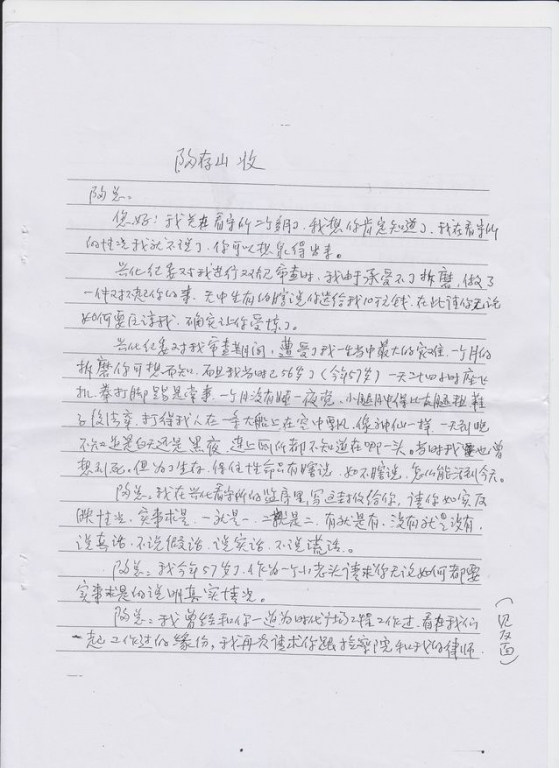 陶存山 收
陶总:
您好!我关在看守所二个多月了,我想你肯定知道了,我在看守所
的情况我就不说了,你可以想象得出来。
兴化纪委对我进行双规审查时,我由于承受不了折磨,做了
一件对不起你的事,无中生有的瞎说你送给我10万元钱,在此请你无论
如何要原谅我,确实让你受惊了。
兴化纪委对我审查期间,遭受了我一生当中最大的灾难,一个月的
折磨你可想而知,而且我当时已56岁了(今年57岁)一天二十四小时座飞
机,拳打脚踢是常事,一个月没有睡一夜觉,小腿肿得比大腿粗,鞋
子后跟,打得我人在一条大船上在空中飘,像神仙一样,一天到晚
不知道是白天还是黑夜,连上厕所都不知道在哪一头。当时我也曾
想到死,但为了生存,保住性命只有瞎说,如不瞎说,怎么能活到今天。
陶总:我在兴化看守所的监房里写这封信给你,请你如实反
映情况,实事求是,一就是一,二就是二,有就是有,没有就是没有,
说真话,不说假话,说实话,不说谎话。
陶总:我今年57岁了,作为一个小老头请求你无论如何都要
实事求是的说明真实情况。
陶总:我曾经和你一道为时代广场工程工作过,看在我们
一起工作过的缘份,我再次请求你跟检察院和我的律师
(见反面)